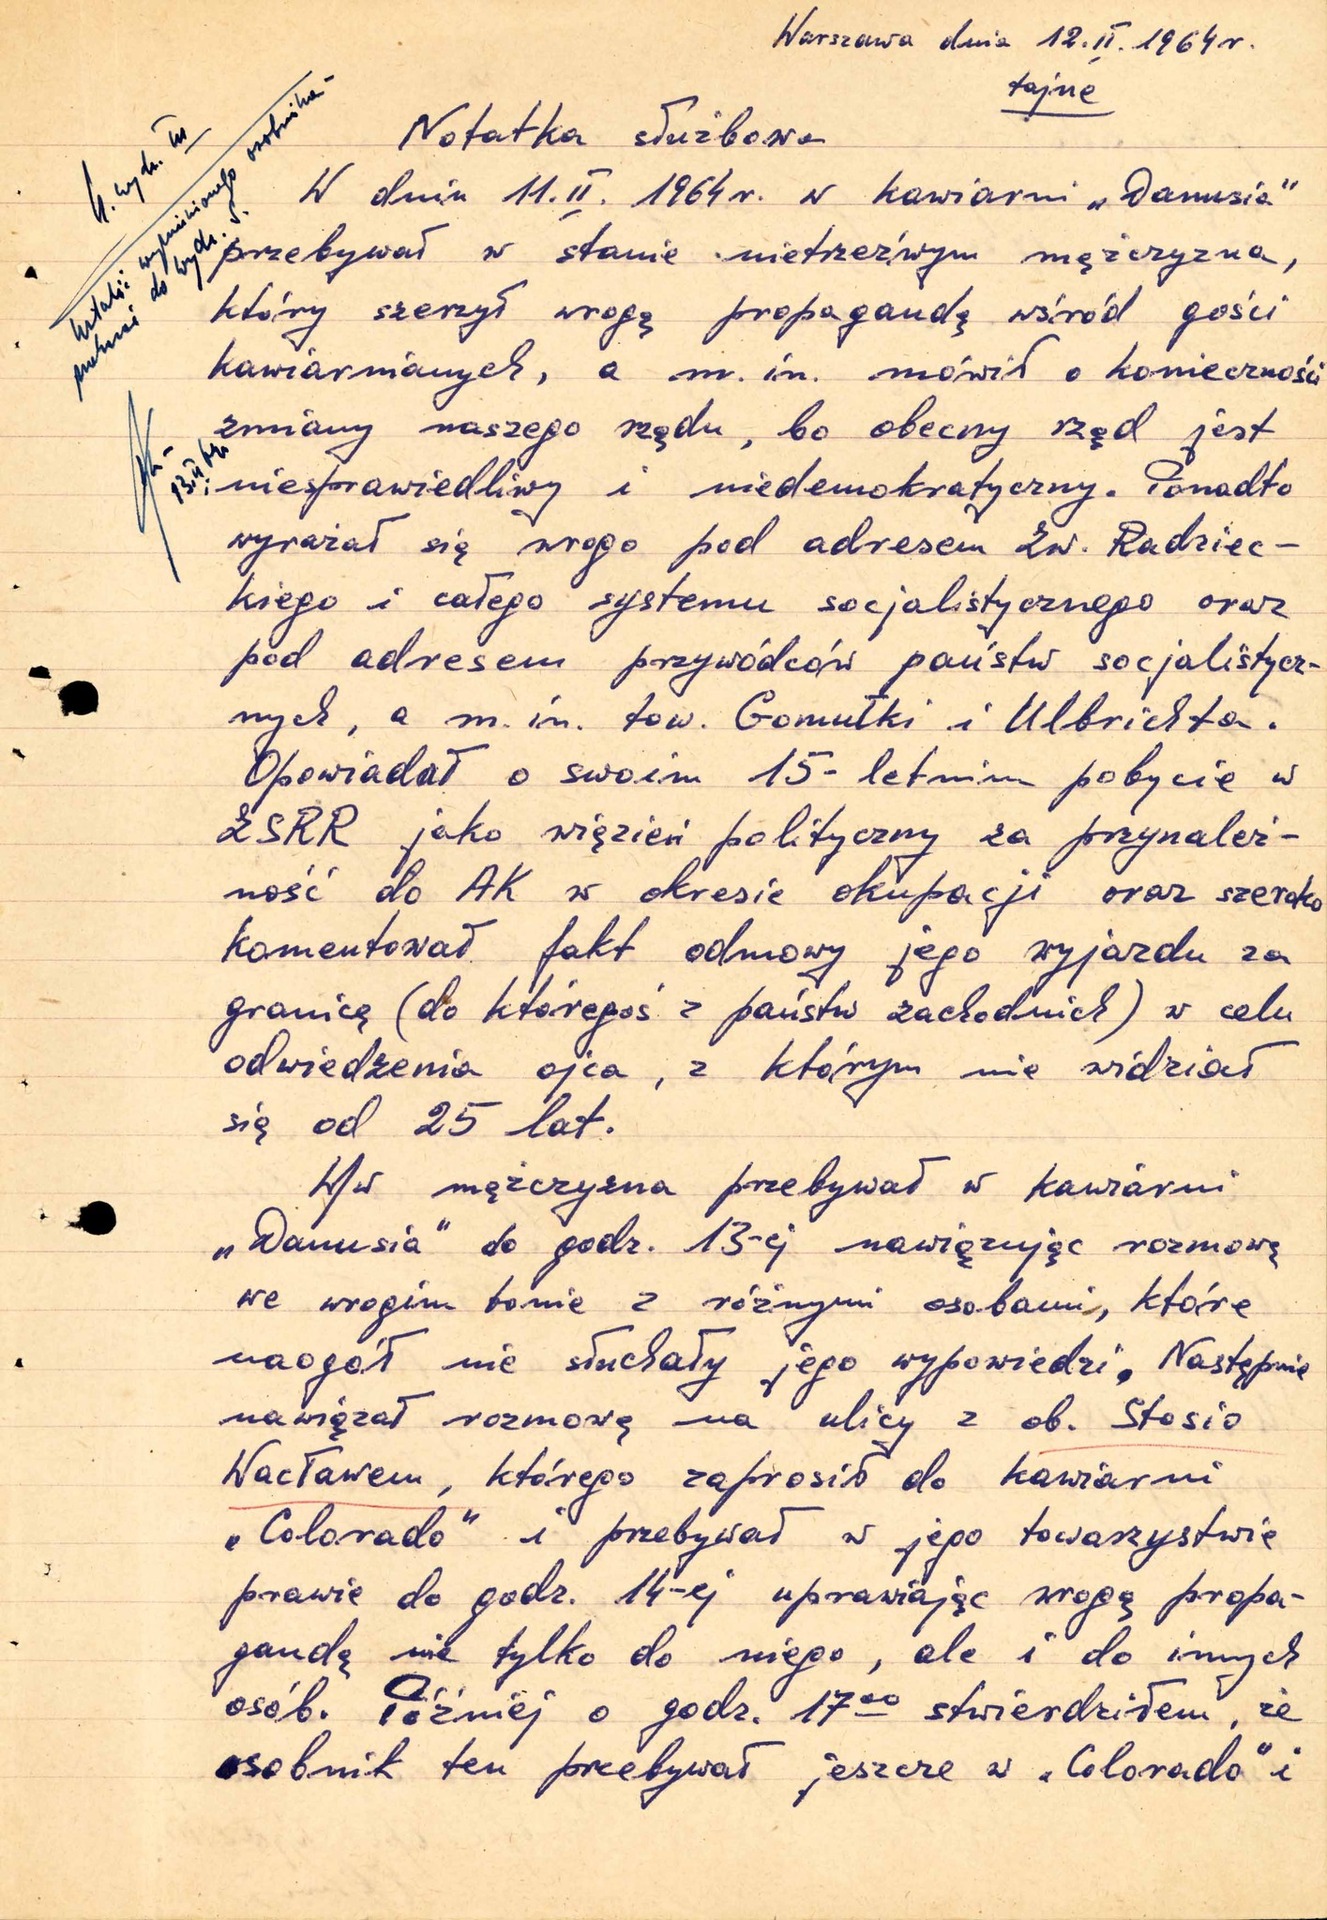 Warszawa dnia 12.II.1964 r.
tajne
Notatka służbowa
N. wydz. III
Ustalić wymienionego osobnika
do wydz.
13.II
W dniu 11.II. 1964 r. w kawiarni „Danusia"
przebywał w stanie nietrzeźwym mężczyzna,
który szerzył wrogą propagandę wśród gości
kawiarnianych, a m.in. mówił o konieczności
zmiany naszego rządu, bo obecny rząd jest
niesprawiedliwy i niedemokratyczny. Ponadto
wyrażał się wrogo pod adresem Zw. Radziec-
kiego i całego systemu socjalistycznego oraz
pod adresem przywódców państw socjalistycz-
nych, a m.in. tow. Gomułki i Ulbrichta.
Opowiadał o swoim 15-letnim pobycie w
ZSRR jako więzień polityczny za przynależ-
ność do AK w okresie okupacji oraz szeroko
komentował fakt odmowy jego wyjazdu za
granicę (do któregoś z państw zachodnich) w celu
odwiedzenia ojca, z którym nie widział
się od 25 lat.
W/w mężczyzna przebywał w kawiarni
„Danusia" do godz. 13-ej nawiązując rozmowę
we wrogim tonie z różnymi osobami, które
naogół nie słuchały jego wypowiedzi. Następnie
nawiązał rozmowę na ulicy z ob. Stosio
Wacławem, którego zaprosił do kawiarni
„Colorado" i przebywał w jego towarzystwie
prawie do godz. 14-ej uprawiając wrogą propa-
gandę nie tylko do niego, ale i do innych
osób. Później o godz. 17⁰⁰ stwierdziłem, że
osobnik ten przebywał jeszcze w „Colorado" i